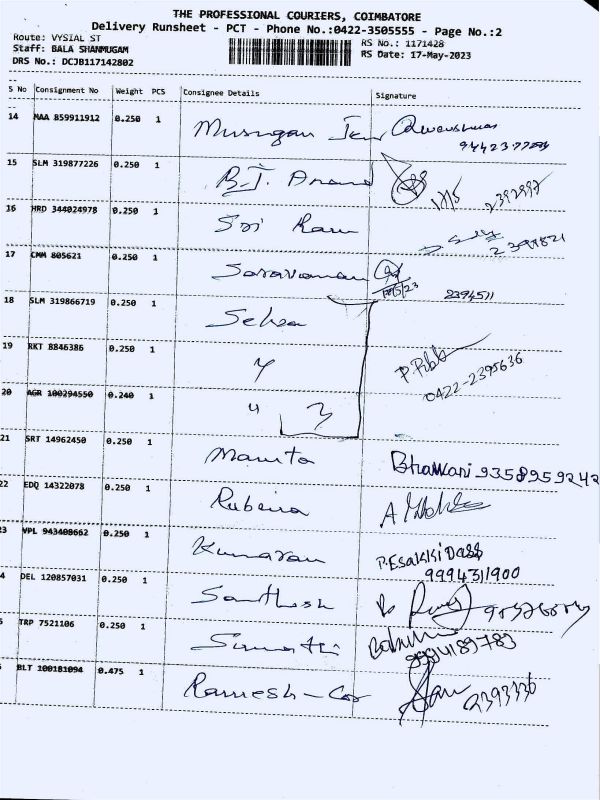 THE PROFESSIONAL COURIERS, COIMBATORE
Delivery Runsheet - PCT - Phone No.:0422-3505555 - Page No.:2
Route: VYSIAL ST
RS No.: 1171428
Staff: BALA SHANMUGAM
RS Date: 17-May-2023
DRS No.: DCJB117142802
S No Consignment No Weight PCS Consignee Details Signature
14 MAA 859911912 0.250 1 Murugan
15 SLM 319877226 0.250 1 B.J. Anand 17/5 2392997
16 HRD 344024978 0.250 1 Sri Ram
17 CMM 805621 0.250 1 Saravanan
18 SLM 319866719 0.250 1 Selva 2394511
19 RKT 8846386 0.250 1 4
0422-2395636
20 AGR 100294550 0.240 1 4 3
21 SRT 14962450 0.250 1 Mamta Bhawani 9358959242
22 EDQ 14322078 0.250 1 Rubeina
3 VPL 943408662 0.250 1 Kumaran P.Esakki Dass
9994311900
4 DEL 120857031 0.250 1 Santhosh
5 TRP 7521106 0.250 1 Sumathi
BLT 100181094 0.475 1 Ramesh-Car 2393336